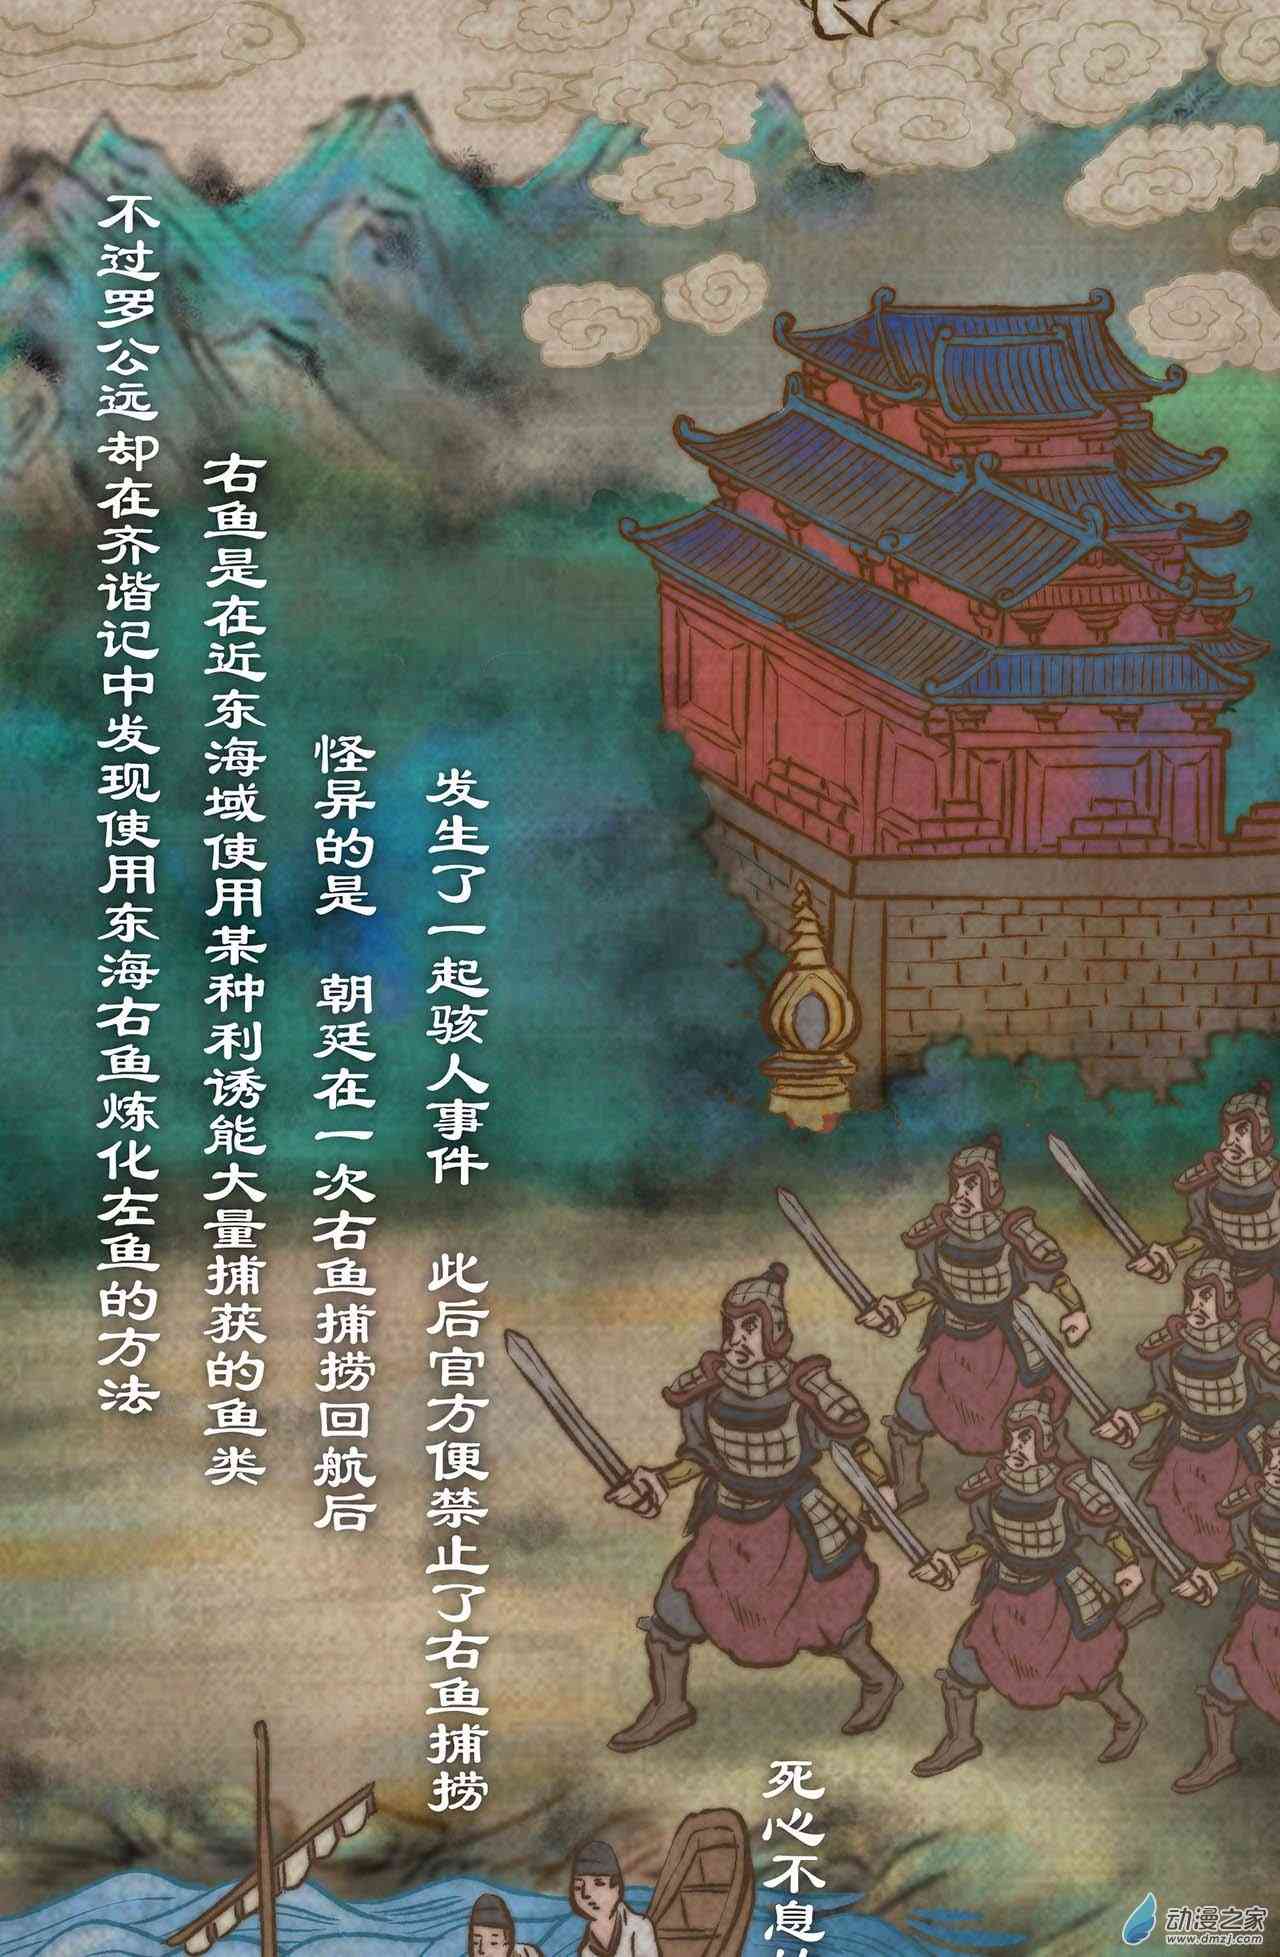 不过罗公远却在齐谐记中发现使用东海右鱼炼化左鱼的方法
右鱼是在近东海域使用某种利诱能大量捕获的鱼类
怪异的是 朝廷在一次右鱼捕捞回航后
发生了一起骇人事件 此后官方便禁止了右鱼捕捞
死心不息
动漫之家
www.dmzj.com